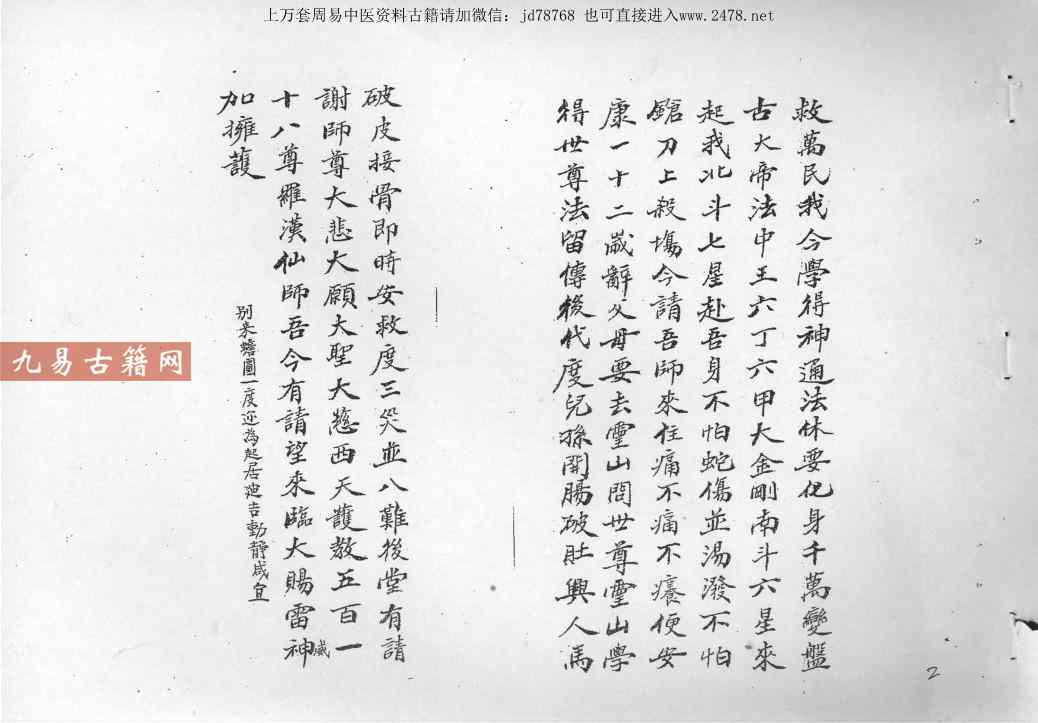 上万套周易中医资料古籍请加微信：jd78768 也可直接进入www.2478.net
救萬民我今學得神通法休要化身千萬變盤
古大帝法中王六丁六甲大金剛南斗六星來
起我北斗七星赴吾身不怕蛇傷並湯潑不怕
鎗刀上殺塲今請吾師來住痛不痛不癢便安
康一十二歲辭父母要去靈山問世尊靈山學
得世尊法留傳後代度兒孫開腸破肚興人馬
破皮接骨即時安救度三災並八難後堂有請
謝師尊大悲大願大聖大慈西天護教五百一
十八尊羅漢仙師吾今有請望來臨大賜雷神
威
加擁護
别来蟾圓一度近為起居迪吉動靜咸宜
2
九易古籍网